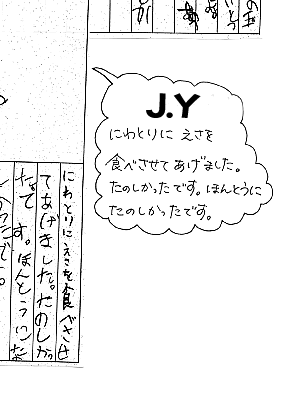 J.Y
にわとりに えさを
食べさせて あげました。
たのしかったです。ほんとうに
たのしかったです。
にわとりにえさを食べさせ
てあげました。たのしかっ
たです。ほんとうにた